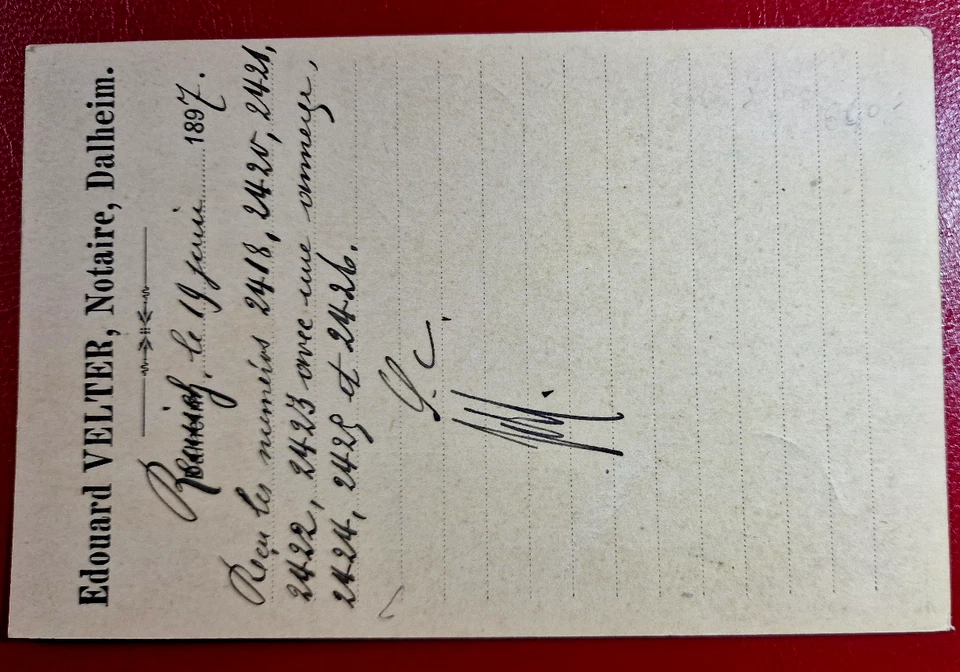 Edouard VELTER, Notaire, Dalheim.
Remich, le 19 juin 1897.
Reçu les numéros 2418, 2420, 2421,
2422, 2423 avec une annexe,
2424, 2425 et 2426.